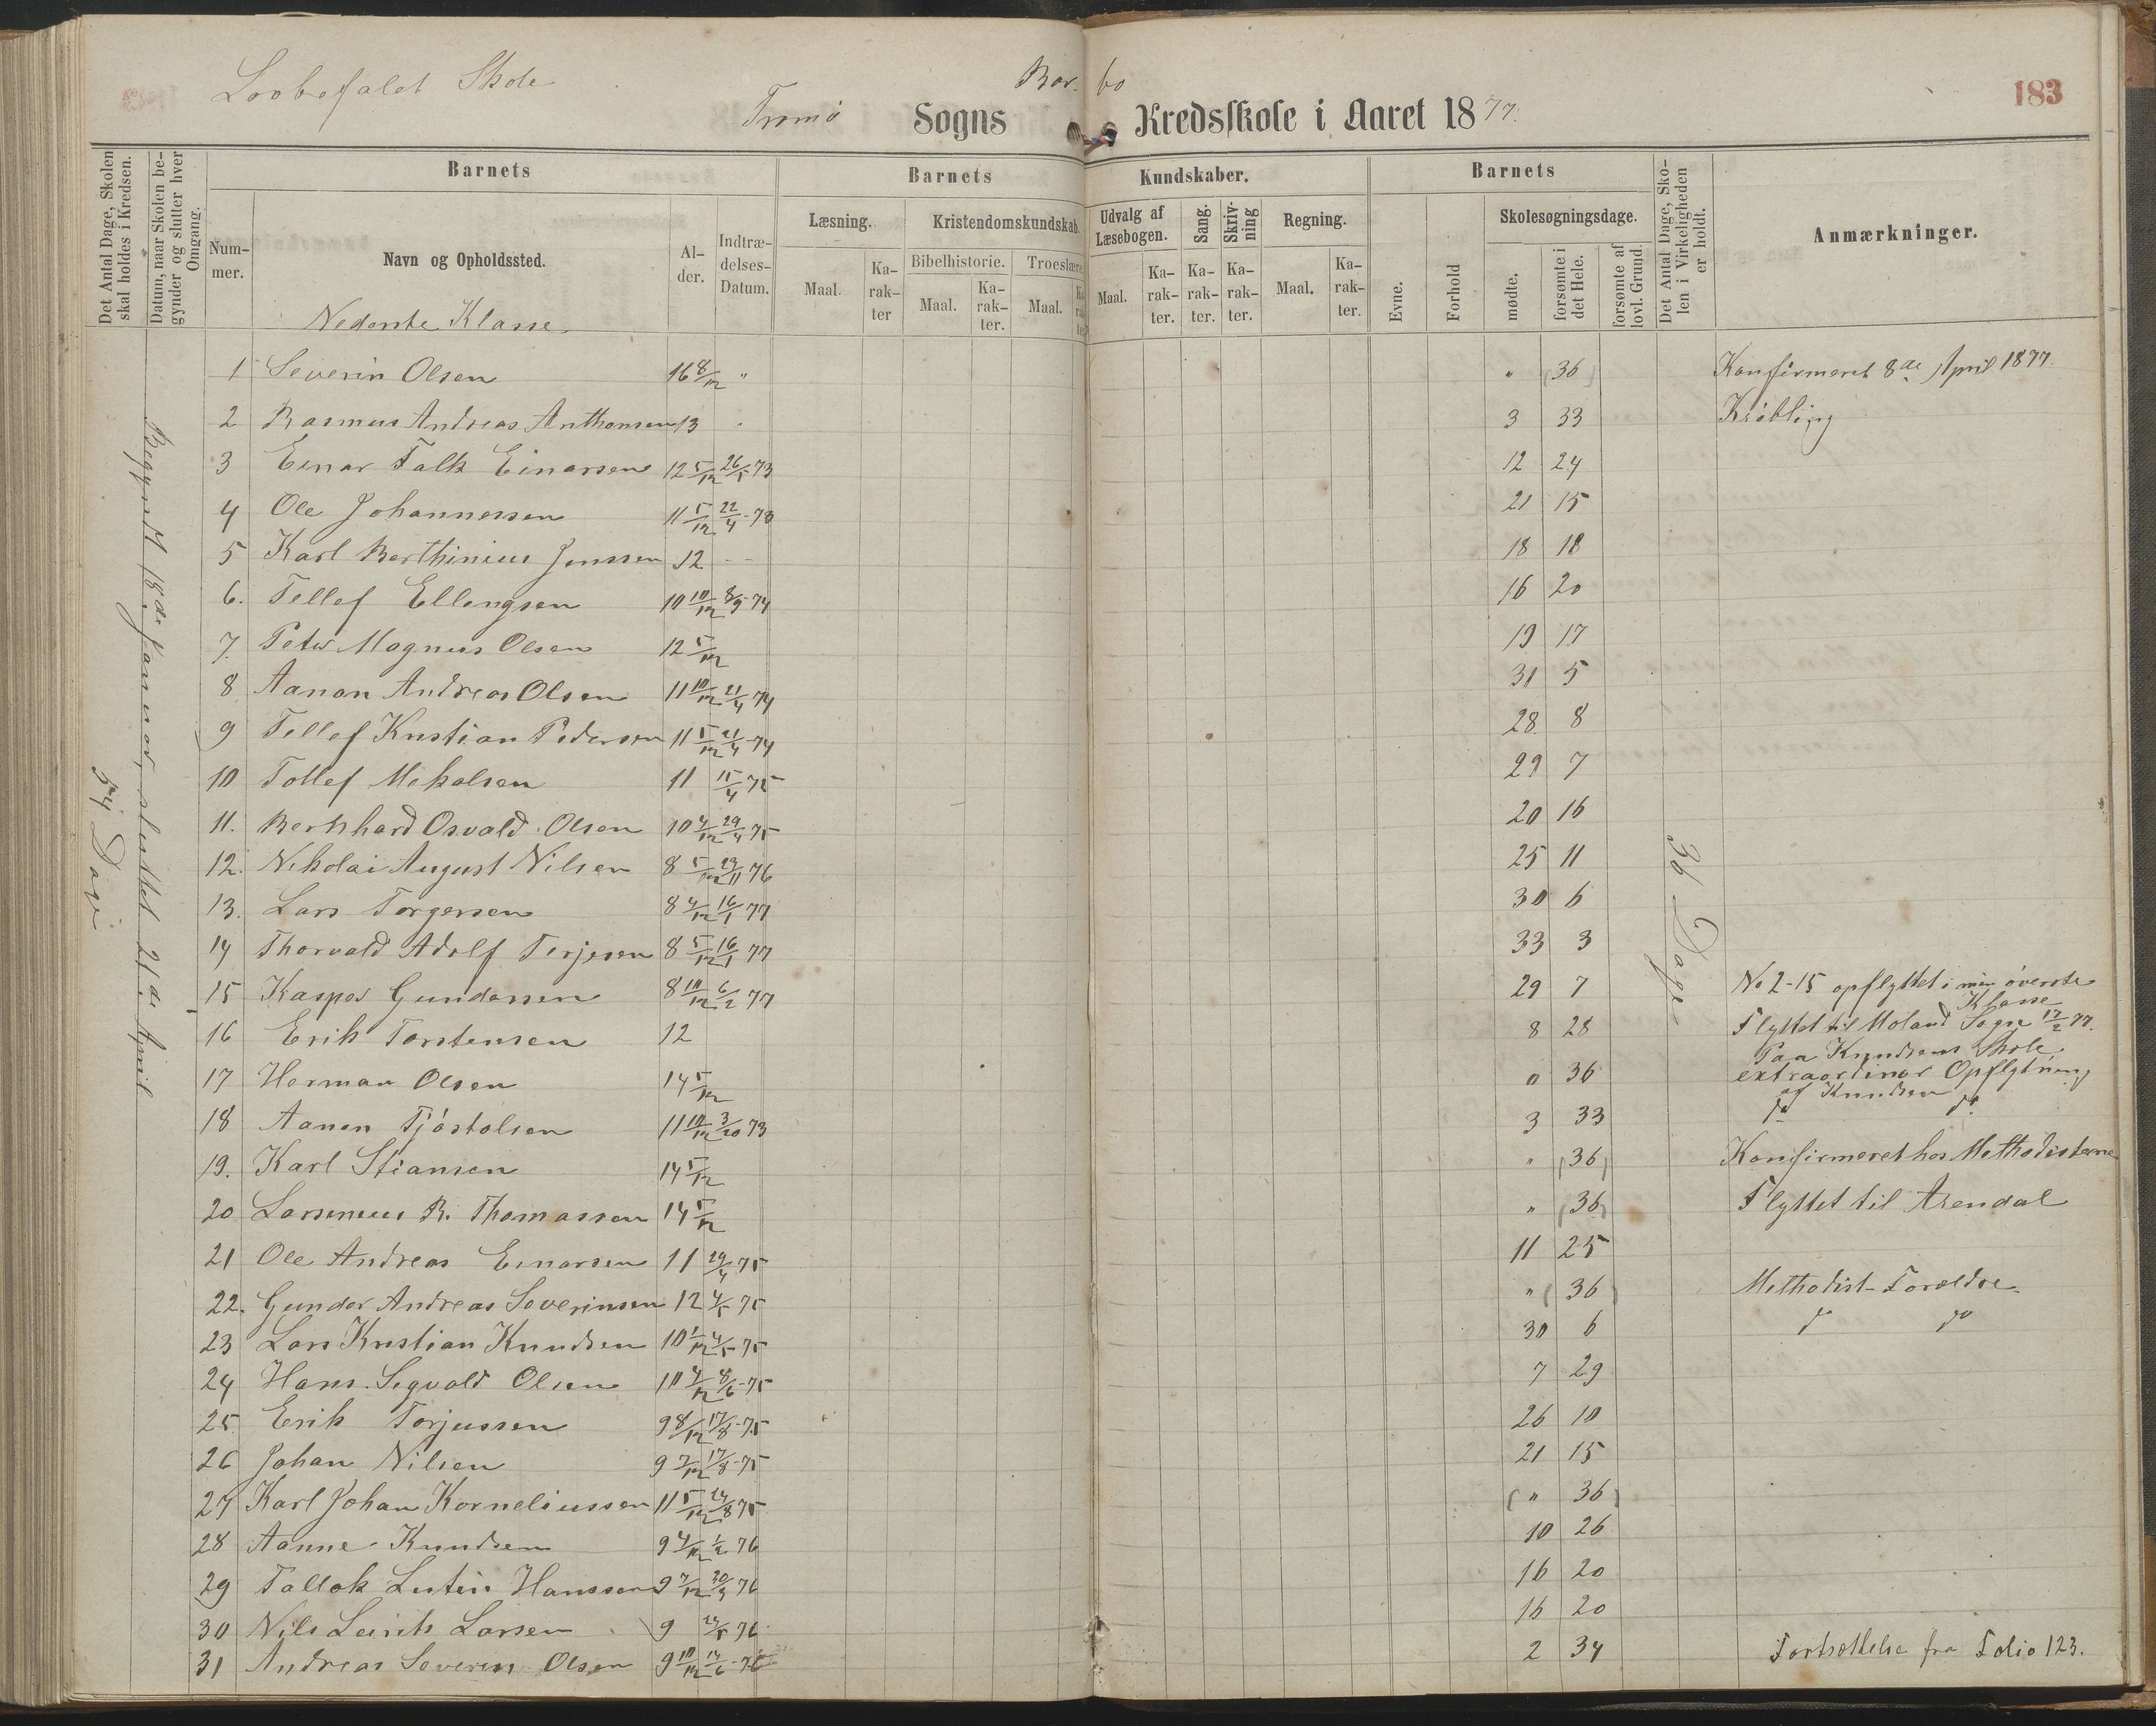 Lovbefalet Skole
Tromö Sogns Bar-bo Kredsskole i Aaret 1877.
183
Det Antal Dage, Skolen skal holdes i Kredsen.
Datum, naar Skolen begynder og slutter hver Omgang.
Barnets
Nummer.
Navn og Opholdssted.
Alder.
Indtrædelses-Datum.
Barnets Kundskaber.
Læsning.
Maal. Karakter
Kristendomskundskab.
Bibelhistorie. Troeslære.
Maal. Karakter. Maal.
Udvalg af Læsebogen.
Maal. Karakter.
Sang. Karakter.
Skrivning Karakter.
Regning.
Maal. Karakter.
Barnets
Evne.
Forhold
Skolesøgningsdage.
mødte.
forsømte i det Hele.
forsømte af lovl. Grund.
Det Antal Dage, Skolen i Virkeligheden er holdt.
Anmærkninger.
Nederste Klasse
Begyndt 18de Januar, sluttet 21de April
54 Dage
36 Dage
1 Severin Olsen 16 8/12 " " (36) Konfirmeret 8de April 1877.
2 Rasmus Andreas Anthonsen 13 3 33 Krøbling
3 Einar Falk Einarsen 12 5/12 26/5 73 12 24
4 Ole Johannessen 11 5/12 22/4-73 21 15
5 Karl Berthinius Jonssen 12 -- 18 18
6. Tellef Ellengsen 10 10/12 8/9-74 16 20
7. Peter Magnus Olsen 12 5/12 19 17
8 Aanon Andreas Olsen 11 10/12 21/4 74 31 5
9 Tellef Kristian Pedersen 11 5/12 21/4-74 28. 8
10 Tollef Mekalsen 11 15/4 75 29 7
11. Bernhard Osvald Olsen 10 4/12 29/4 75 20 16
12. Nikolai August Nilsen 8 5/12 23/11 76 25 11
13. Lars Torgersen 8 4/12 16/1 77 30 6
14 Thorvald Adolf Terjesen 8 5/12 16/1 77 33 3
15 Kasper Gundersen 8 10/12 6/2 77 29 7 No 2-15 opflyttet i min øverste Klasse
16 Erik Torstensen 12 8 28 Flyttet til Moland Sogn 17/2 77.
17 Herman Olsen 14 5/12 " 36 Paa Knudsens Skole extraordinær Opflytning af Knudsen
18 Aanon Tjöstolsen 11 10/12 3/20 73 3 33 do do
19. Karl Stiansen 14 5/12 " (36) Konfirmeret hos Methodisterne
20 Larsenius R. Thomassen 14 5/12 " (36) Flyttet til Arendal
21 Ole Andreas Einarsen 11 29/4 75 11 25
22. Gunder Andreas Severinsen 12 4/5-75 " (36) Methodist-Forældre
23 Lars Kristian Knudsen 10 1/12 4/5-75 30 6 do do
24 Hans Segvald Olsen 10 4/12 8/6-75 7 29
25. Erik Torjussen 9 8/12 17/8-75 26 10
26 Johan Nilsen 9 7/12 17/8-75 21 15
27 Karl Johan Korneliussen 11 5/12 24/8 75 (" 36)
28 Aanne Knudsen 9 4/12 1/2 76 10 26
29 Tallak Hanssen 9 7/12 20/3 76 16 20
30 Nils Larsen 9 24/5 76 16 20
31 Andreas Severin Olsen 9 10/12 14/6-76 2 34 Fortsættelse fra Folio 123.